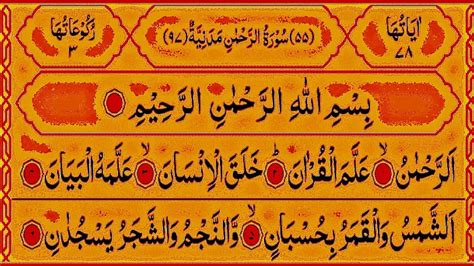 اٰيَاتُهَا ٧٨ (٥٥) سُوْرَةُ الرَّحْمٰنِ مَدَنِيَّةٌ (٩٧) رُكُوْعَاتُهَا ٣
بِسْمِ اللّٰهِ الرَّحْمٰنِ الرَّحِيْمِ
اَلرَّحْمٰنُ ۙ عَلَّمَ الْقُرْاٰنَ ؕ خَلَقَ الْاِنْسَانَ ۙ عَلَّمَهُ الْبَيَانَ
اَلشَّمْسُ وَالْقَمَرُ بِحُسْبَانٍ ۙ وَّالنَّجْمُ وَالشَّجَرُ يَسْجُدٰنِ